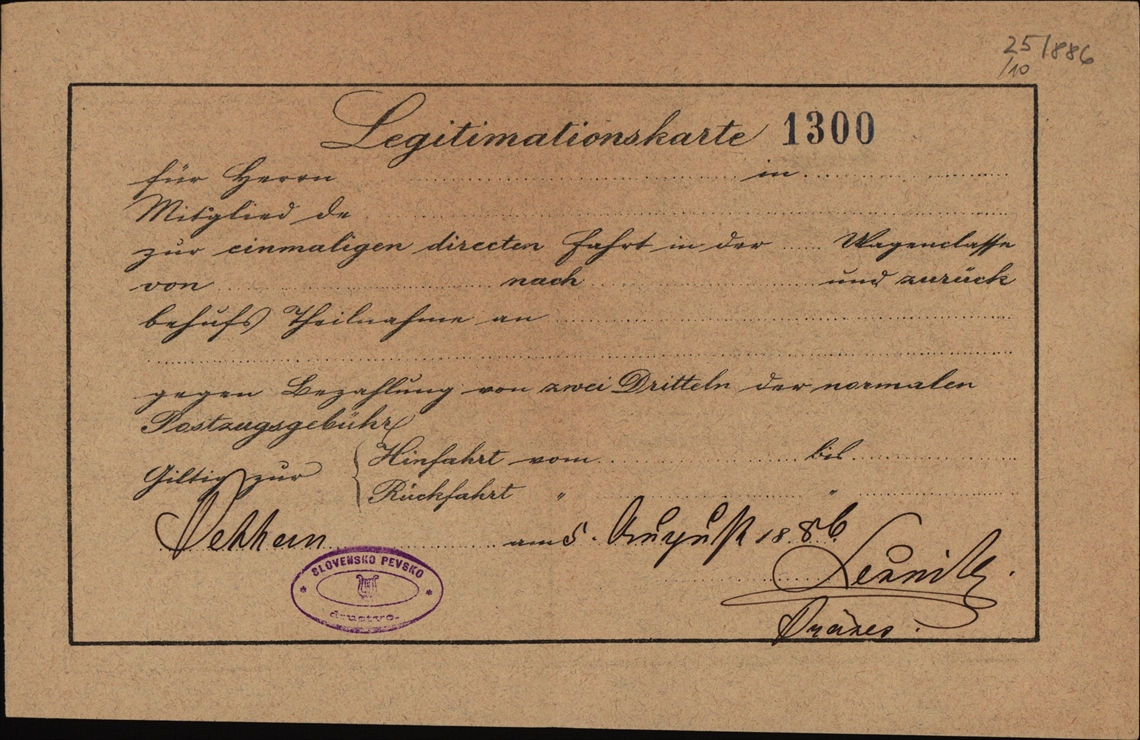 25/886
/10
Legitimationskarte 1300
für Herrn in
Mitglied de
zur einmaligen directen Fahrt in der Wagenclasse
von nach und zurück
behufs Theilnahme an
gegen Bezahlung von zwei Dritteln der normalen
Postzugsgebühr
Giltig zur { Hinfahrt vom bis
Rückfahrt " "
am 5. August 1886.
SLOVENSKO PEVSKO
društvo.
Präses.